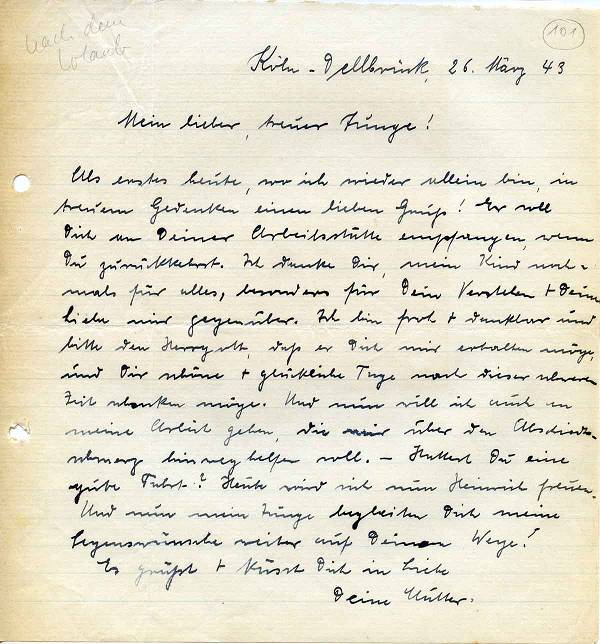 nach dem
Urlaub
101
Köln-Dellbrück, 26. März 43
Mein lieber, treuer Junge!
Als erstes heute, wo ich wieder allein bin, in
treuem Gedenken einen lieben Gruß! Er soll
Dich an Deiner Arbeitsstätte empfangen, wenn
Du zurückkehrst. Ich danke Dir, mein Kind noch-
mals für alles, besonders für Dein Verstehen + Deine
Liebe mir gegenüber. Ich bin froh + dankbar und
bitte den Herrgott, daß er Dich mir erhalten möge,
und Dir schöne + glückliche Tage nach dieser schweren
Zeit schenken möge. Und nun will ich auch an
meine Arbeit gehen, die mir über den Abschieds-
schmerz hinweghelfen soll. – Hattest Du eine
gute Fahrt? Heute wird sich nun Heinrich freuen.
Und nun mein Junge begleiten Dich meine
Segenswünsche weiter auf Deinem Wege!
Es grüßt + küsst Dich in Liebe
Deine Mutter.